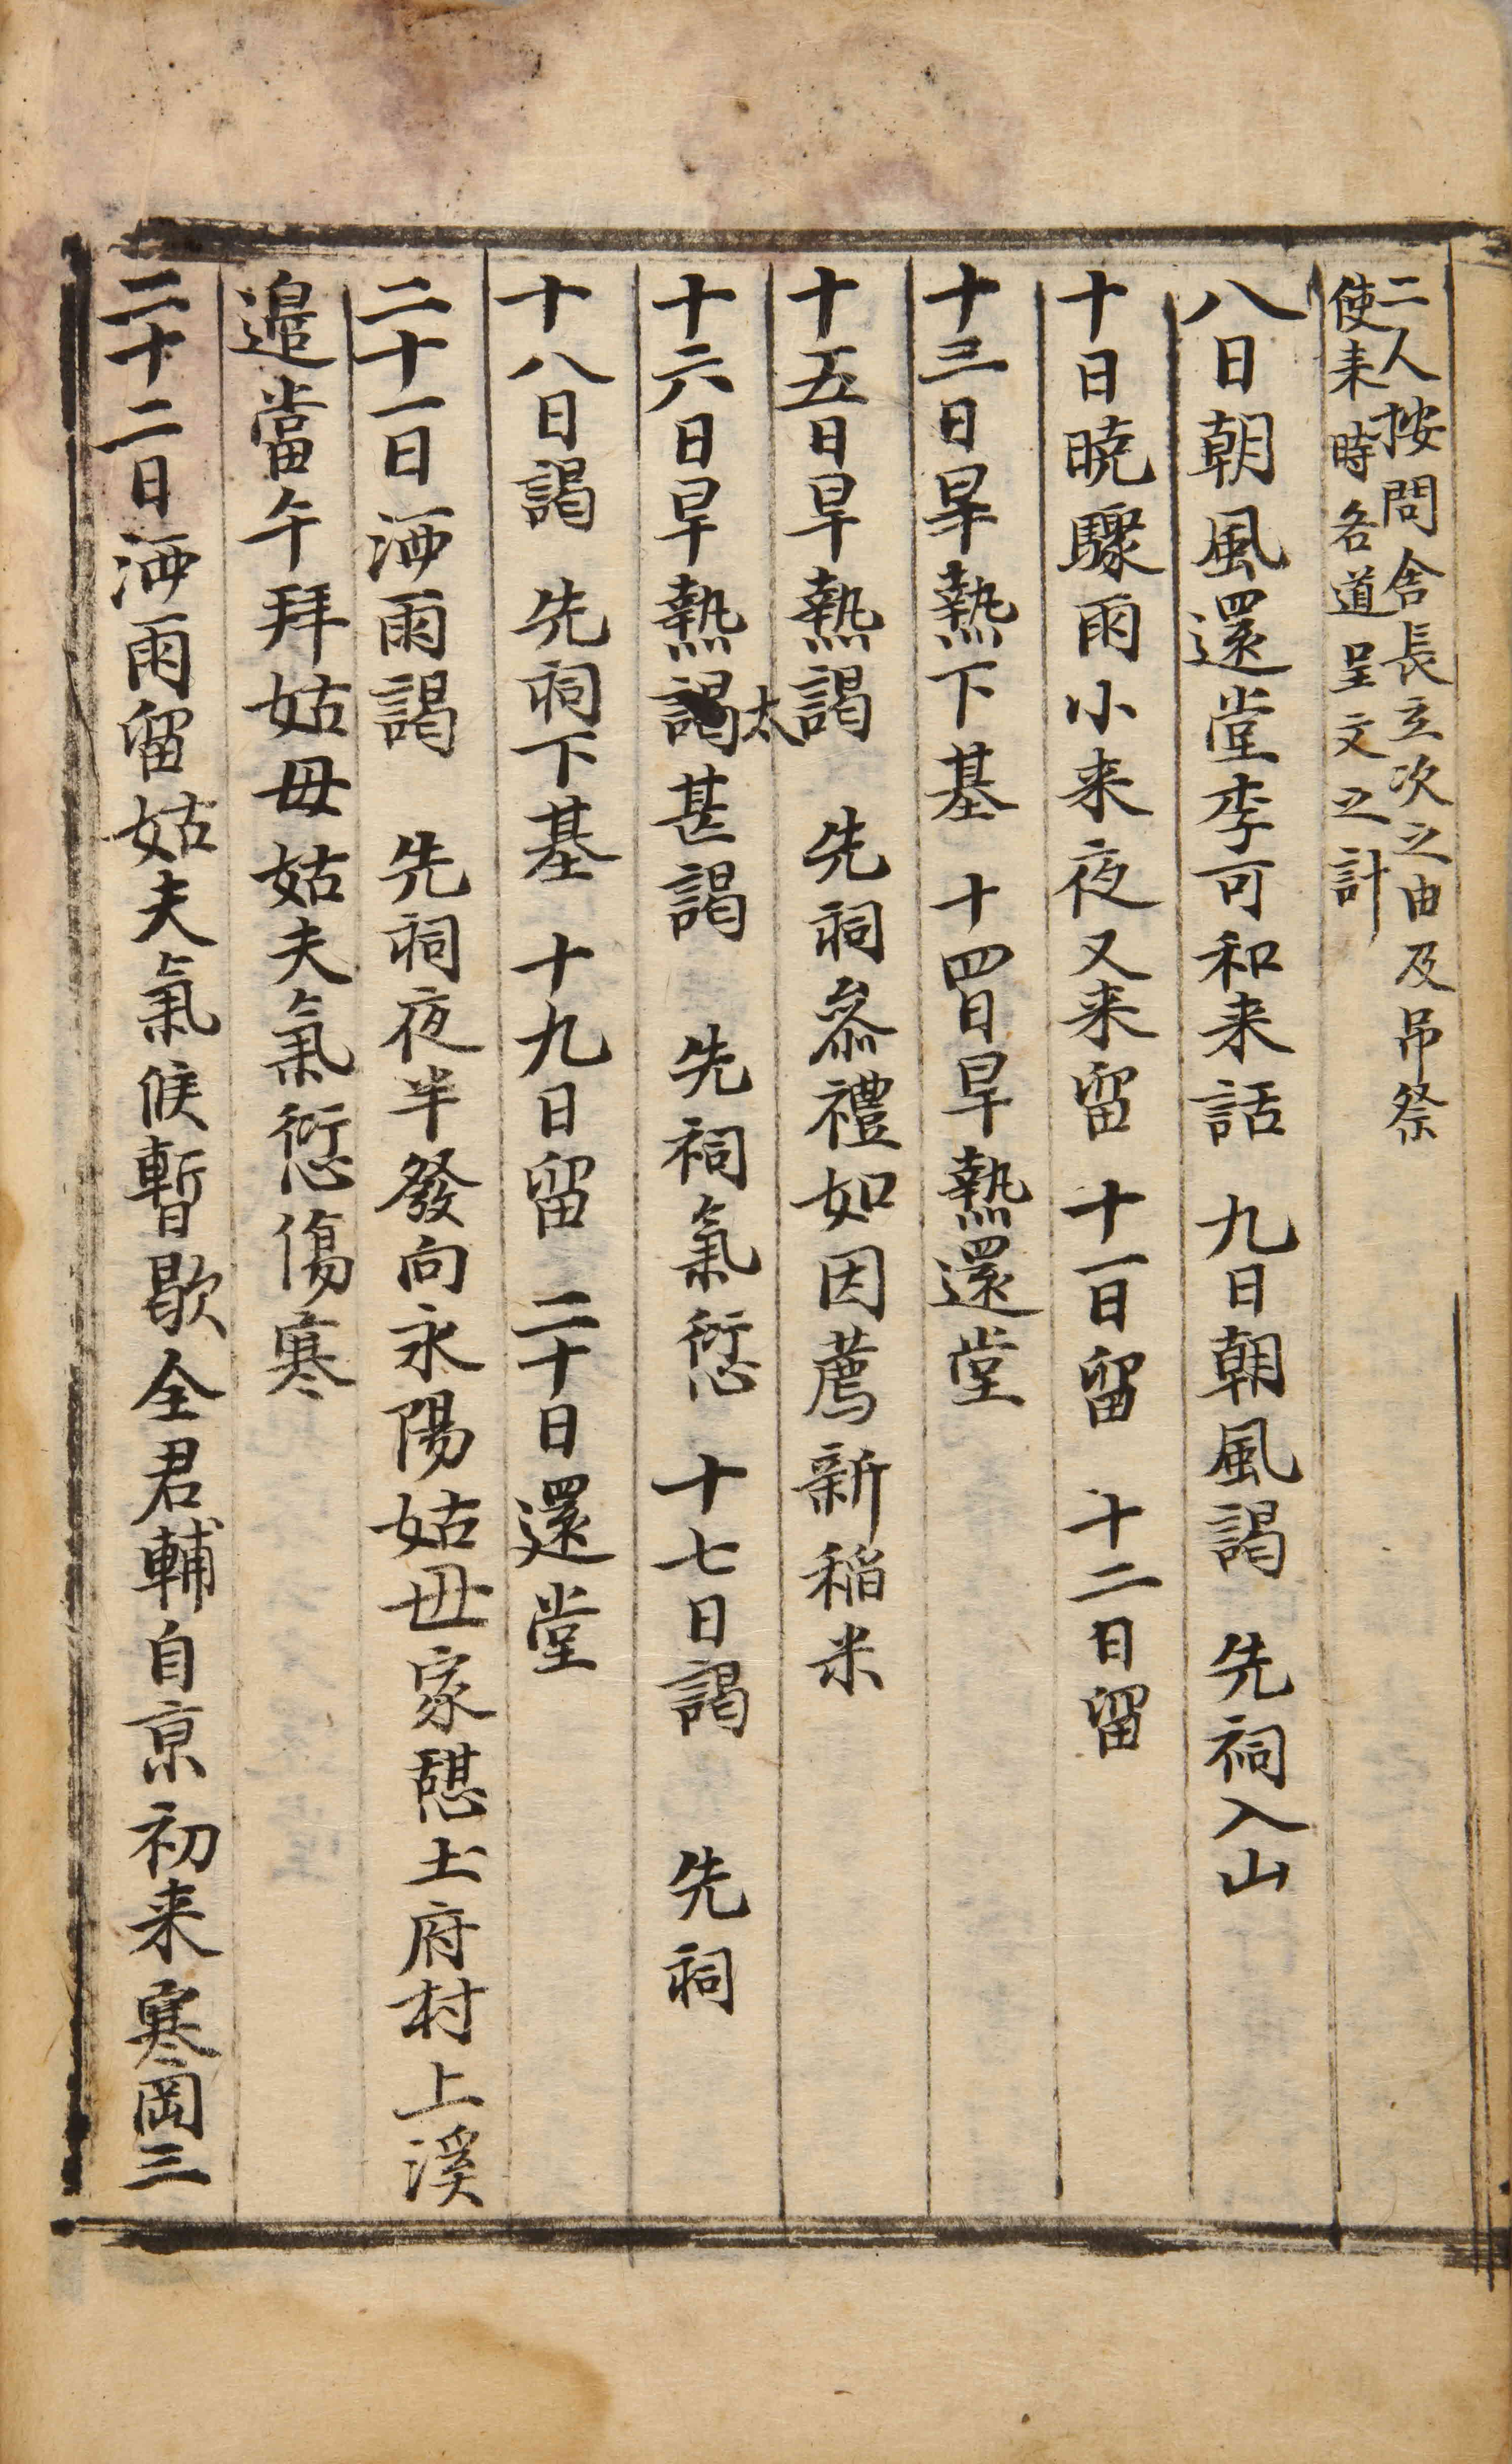 二人按問舍長立次之由及吊祭
使来時各道呈文之計
八日朝風還堂李可和来話 九日朝風謁 先祠入山
十日暁驟雨小来夜又来留 十一日留 十二日留
十三日旱熱下基 十四日旱熱還堂
十五日旱熱謁 先祠叅禮如因薦新稲米
十六日旱熱太甚謁 先祠氣愆 十七日謁 先祠
十八日謁 先祠下基 十九日留 二十日還堂
二十一日洒雨謁 先祠夜半發向永陽姑母家憇土府村上溪
邉當午拜姑母姑夫氣愆傷寒
二十二日洒雨留姑夫氣候暫歇全君輔自京初来寒岡三